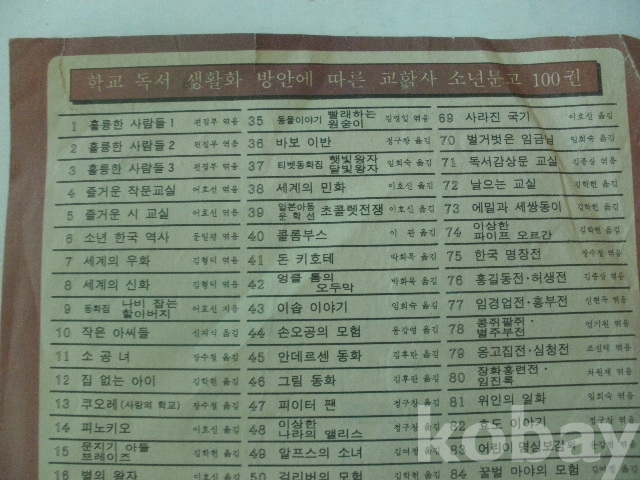 학교 독서 생활화 방안에 따른 교학사 소년문고 100권
1 훌륭한 사람들 1 편집부 엮음
2 훌륭한 사람들 2 편집부 엮음
3 훌륭한 사람들 3 편집부 엮음
4 즐거운 작문교실 이호선
5 즐거운 시 교실 이호선
6 소년 한국 역사 엮음
7 세계의 우화 김형덕 엮음
8 세계의 신화 김형덕 엮음
9 동화집 나비 잡는 할아버지 지음
10 작은 아씨들 신지식 옮김
11 소 공 녀 장수철 옮김
12 집 없는 아이 김학현 옮김
13 쿠오레 (사랑의 학교) 장수철 옮김
14 피노키오 이호신 옮김
15 문지기 아들 브레이즈 김학현 옮김
16 별의 왕자 옮김
35 동물이야기 빨래하는 원숭이 김영일 옮김
36 바보 이반 정구창 옮김
37 티벳동화집 햇빛왕자 달빛왕자 임희숙 옮김
38 세계의 민화 이호신 옮김
39 일본아동문학선 초콜렛전쟁 이호신 옮김
40 콜롬부스 옮김
41 돈 키호테 박화목 옮김
42 엉클 톰의 오두막 박화목 옮김
43 이솝 이야기 임희숙 옮김
44 손오공의 모험 옮김
45 안데르센 동화 옮김
46 그림 동화 옮김
47 피이터 팬 정구창 옮김
48 이상한 나라의 앨리스 정구창 옮김
49 알프스의 소녀 옮김
50 걸리버의 모험
69 사라진 국기 이호신 옮김
70 벌거벗은 임금님 임희숙 옮김
71 독서감상문 교실 김종상 엮음
72 날으는 교실 김학현 옮김
73 에밀과 세쌍둥이 김학현 옮김
74 이상한 파이프 오르간 김학현 옮김
75 한국 명장전 장수철 엮음
76 홍길동전·허생전 김종상 엮음
77 임경업전·흥부전 엮음
78 콩쥐팥쥐·별주부전 엄기원 엮음
79 옹고집전·심청전 엮음
80 장화홍련전·임진록 차원재 엮음
81 위인의 일화 임희숙 엮음
82 효도 이야기 엮음
83 어린이 명심보감 엮음
84 꿀벌 마야의 모험 옮김
kobay